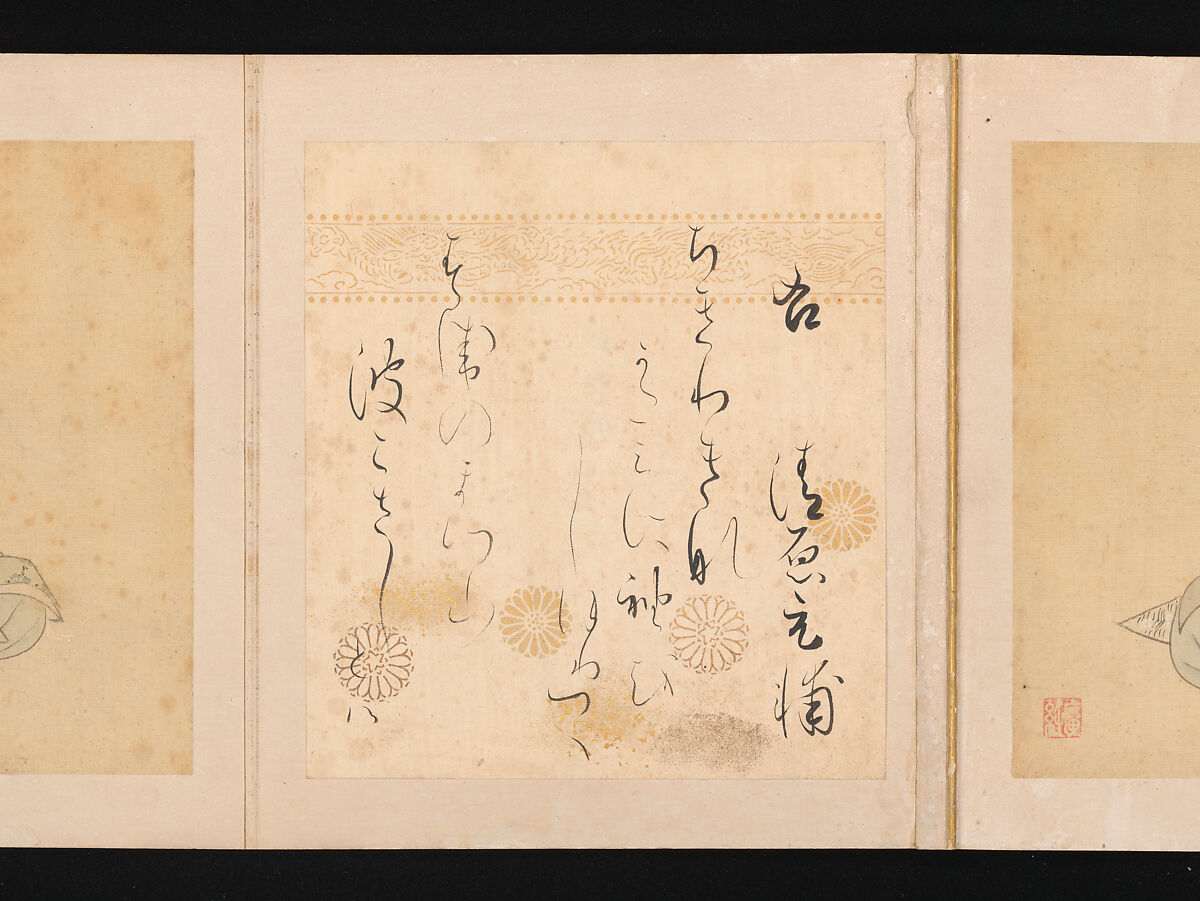 右
清原元輔
ちきりきな
かたみに袖を
しほりつゝ
すゑのまつ山
波こさしとは